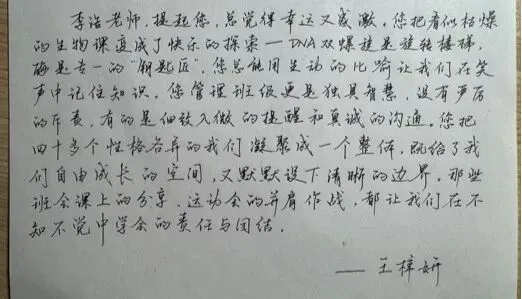 李洁老师，提起您，总觉得幸运又感激。您把看似枯燥
的生物课变成了快乐的探索——DNA双螺旋是旋转楼梯，
酶是专一的“钥匙匠”，您总能用生动的比喻让我们在笑
声中记住知识。您管理班级更是独具智慧，没有严厉
的斥责，有的是细致入微的提醒和真诚的沟通。您把
四十多个性格各异的我们凝聚成一个整体，既给了我
们自由成长的空间，又默默设下清晰的边界。那些
班会课上的分享、运动会的并肩作战，都让我们在不
知不觉中学会的责任与团结。
——王梓妍